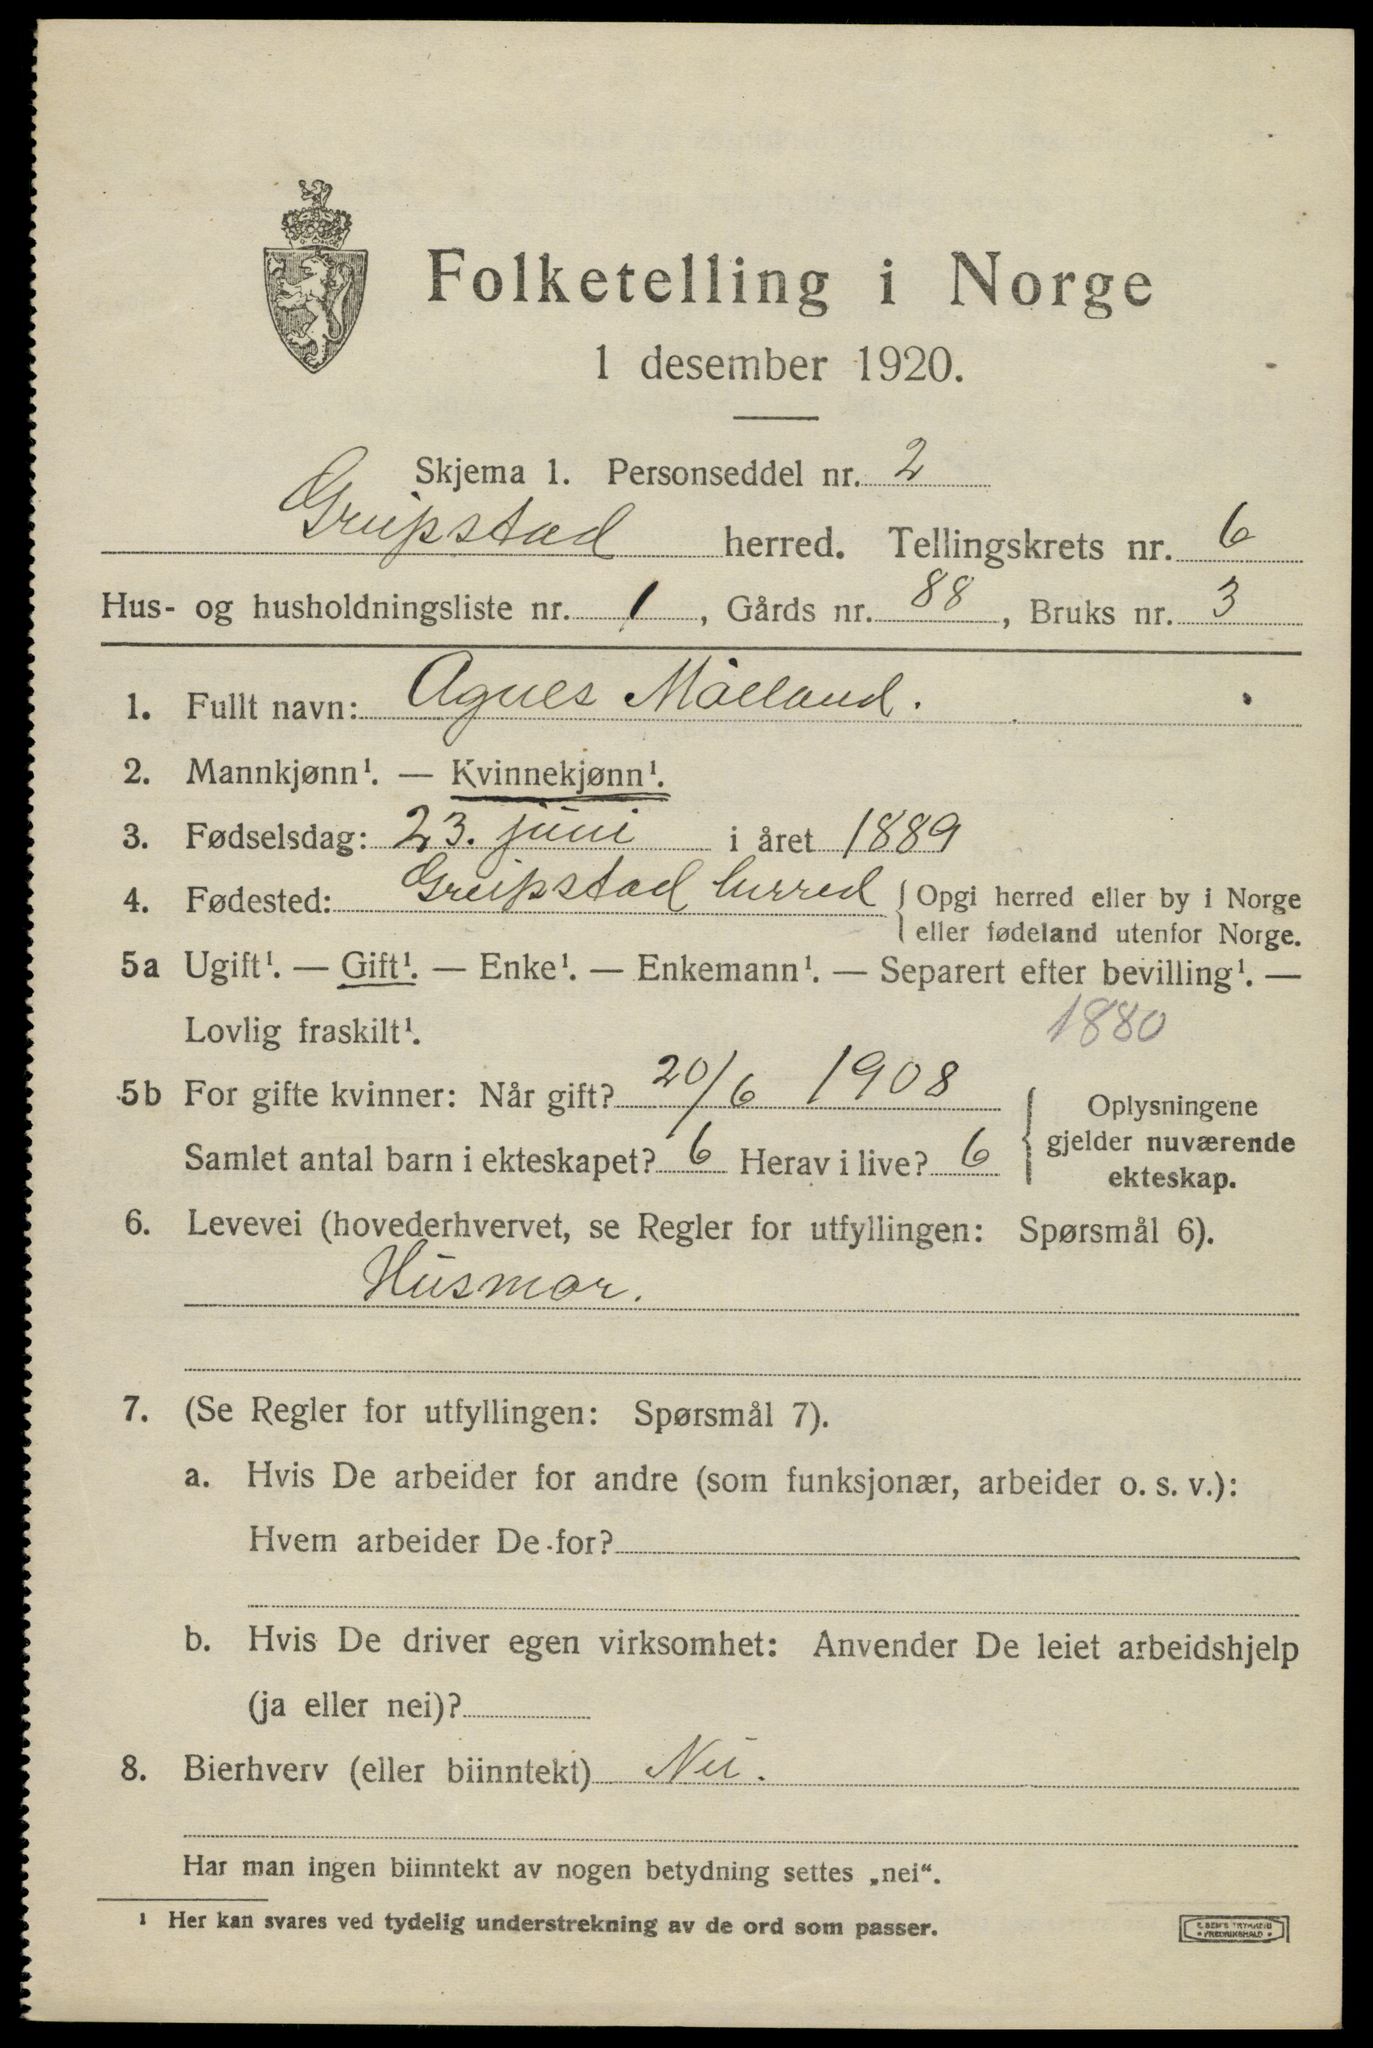 Folketelling i Norge
1 desember 1920.
Skjema 1. Personseddel nr. 2
Greipstad herred. Tellingskrets nr. 6
Hus- og husholdningsliste nr. 1, Gårds nr. 88, Bruks nr. 3
1. Fullt navn: Agnes Målland.
2. Mannkjønn¹. — Kvinnekjønn¹.
3. Fødselsdag: 23. juni i året 1889
4. Fødested: Greipstad herred { Opgi herred eller by i Norge
eller fødeland utenfor Norge.
5a Ugift¹. — Gift¹. — Enke¹. — Enkemann¹. — Separert efter bevilling¹. —
Lovlig fraskilt¹. 1880
5b For gifte kvinner: Når gift? 20/6 1908
Samlet antal barn i ekteskapet? 6 Herav i live? 6
{ Oplysningene
gjelder nuværende
ekteskap.
6. Levevei (hovederhvervet, se Regler for utfyllingen: Spørsmål 6).
Husmor.
7. (Se Regler for utfyllingen: Spørsmål 7).
a. Hvis De arbeider for andre (som funksjonær, arbeider o. s. v.):
Hvem arbeider De for?
b. Hvis De driver egen virksomhet: Anvender De leiet arbeidshjelp
(ja eller nei)?
8. Bierhverv (eller biinntekt) Nei.
Har man ingen biinntekt av nogen betydning settes „nei“.
¹ Her kan svares ved tydelig understrekning av de ord som passer.
E. SEM'S TRYKKERI
• FREDRIKSHALD •